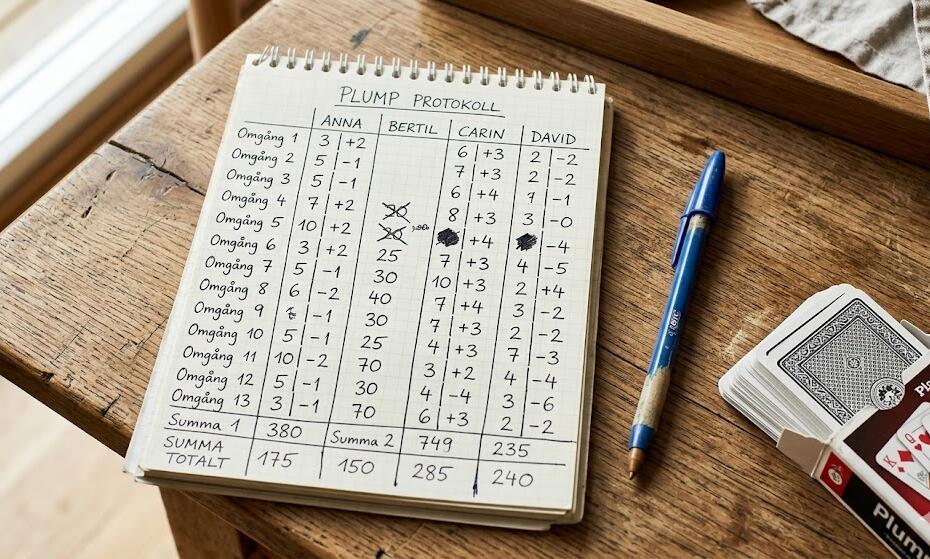 PLUMP PROTOKOLL
ANNA BERTIL CARIN DAVID
Omgång 1 3 +2 6 +3 2 -2
Omgång 2 5 -1 7 +3 2 -2
Omgång 3 5 -1 6 +4 1 -1
Omgång 4 7 +2 20 8 +3 3 -0
Omgång 5 10 +2 20 +4 -4
Omgång 6 3 +2 25 7 +3 4 -5
Omgång 7 5 -1 30 10 +3 2 +4
Omgång 8 6 -2 40 7 +4 3 -2
Omgång 9 -1 30 7 +3 2 -2
Omgång 10 5 -1 25 4 +3 7 -3
Omgång 11 10 -2 70 3 +2 4 -4
Omgång 12 5 -1 30 4 -4 3 -6
Omgång 13 3 -1 70 6 +3 2 -2
Summa 1 380 Summa 2 749 235
SUMMA TOTALT 175 150 285 240
BIC
Q
K
Plum